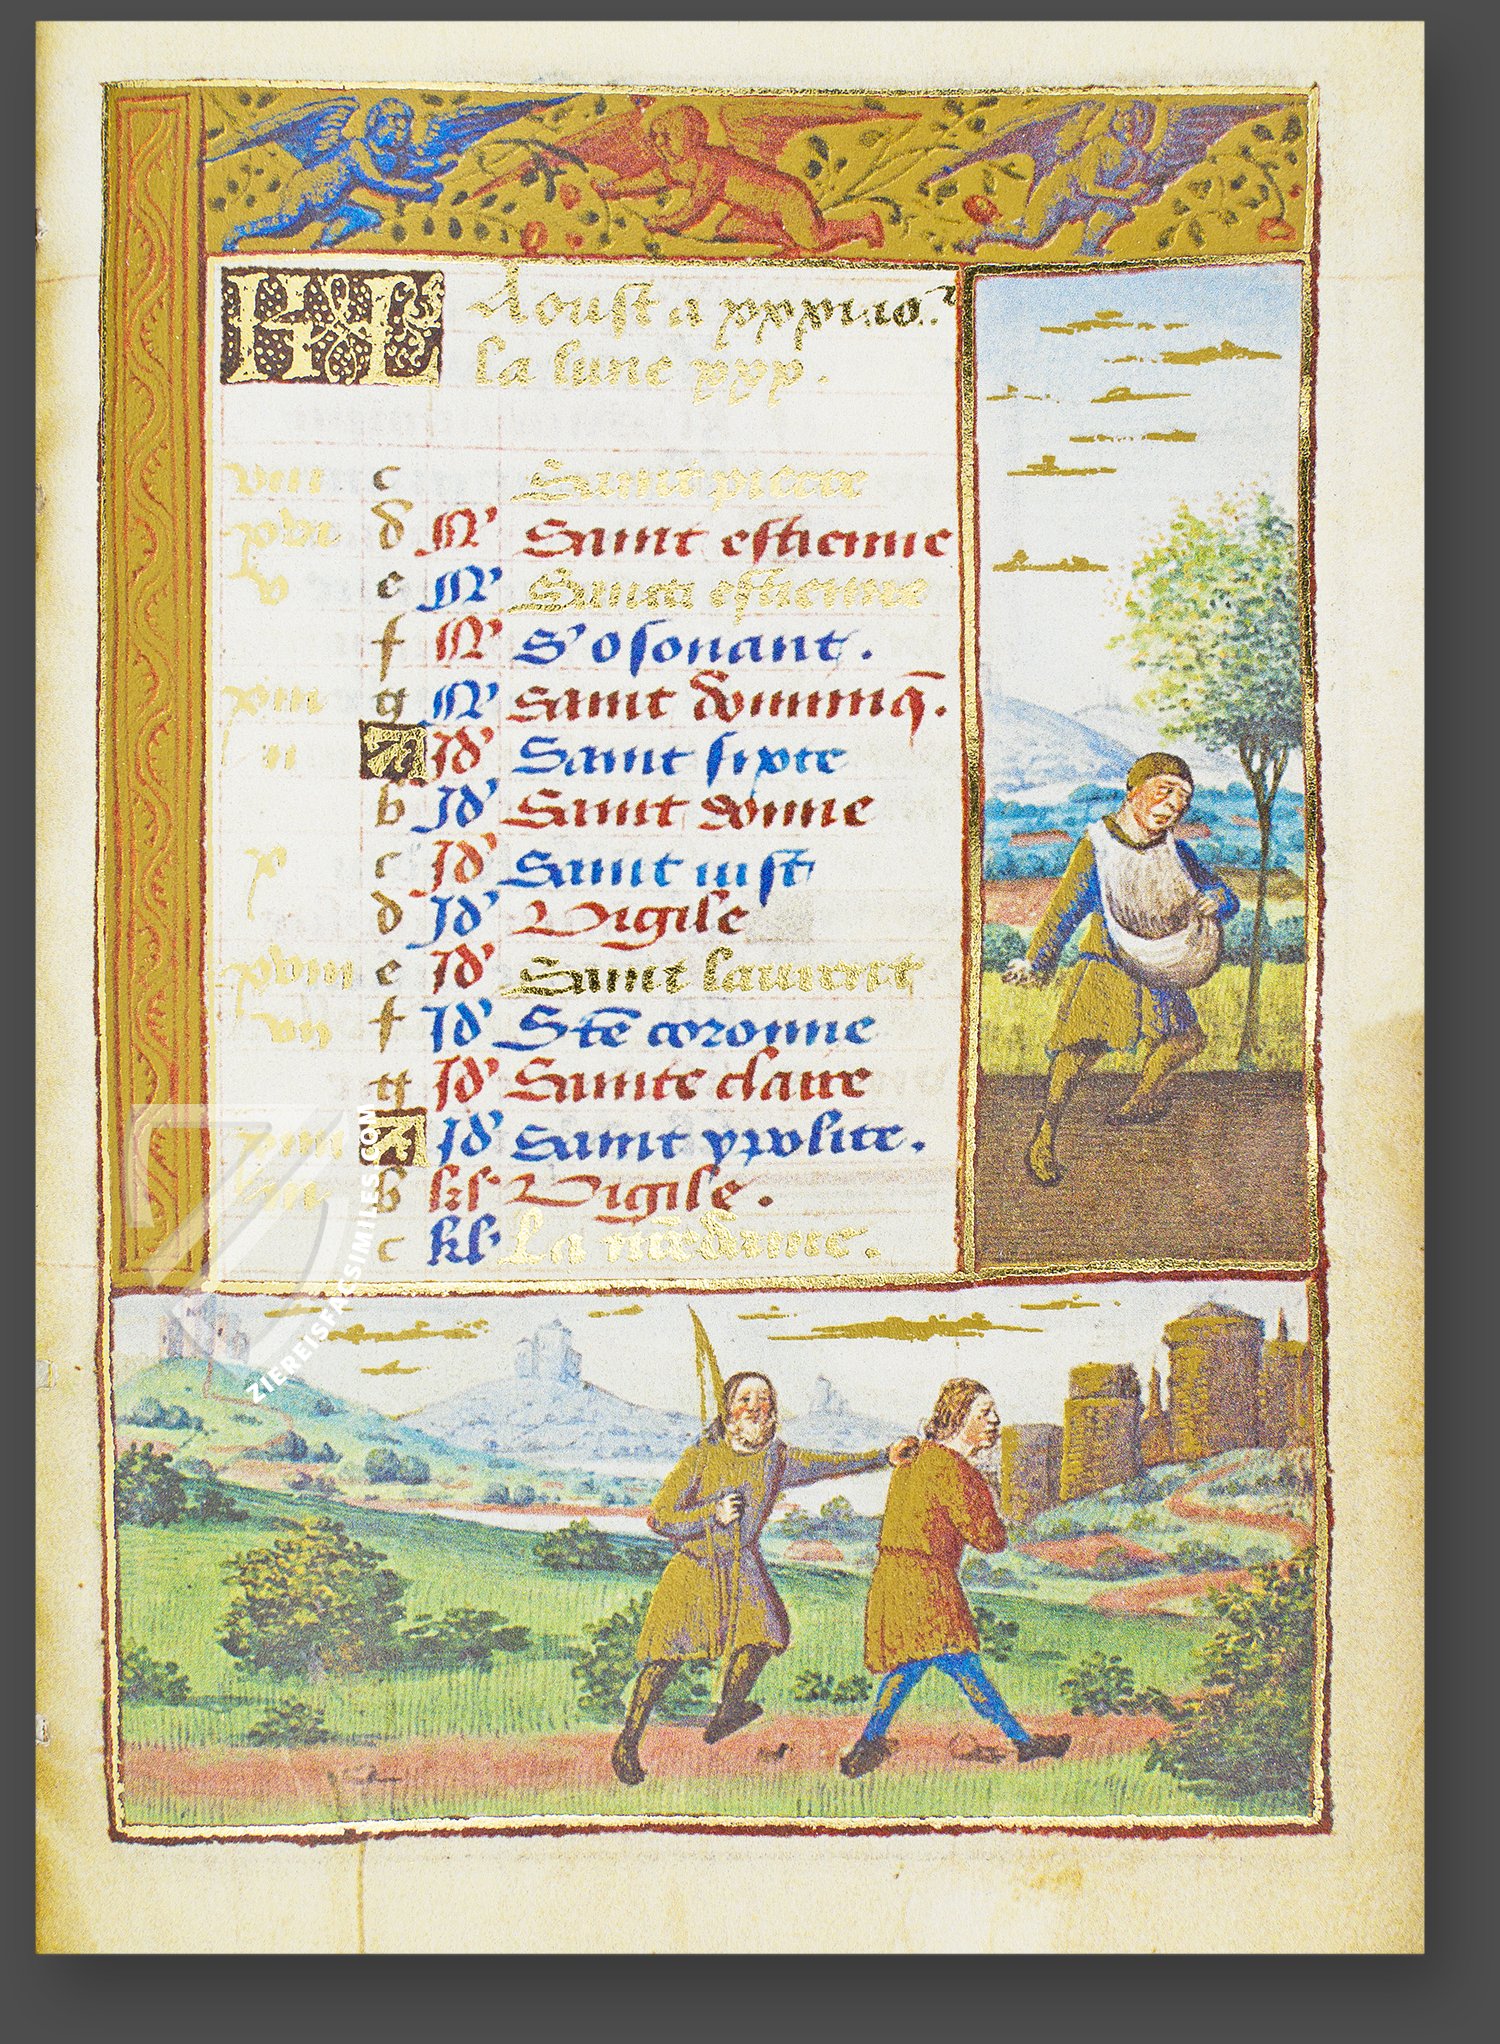 KL Aoust a xxxi. io.r
la lune xxx.
viii c Saint pierre
xvi d N' Saint estienne
v e N' Sainct estienne
f N' S' osouant.
xiii g N' Saint dominiq.
ii A Id' Saint sixte
b Id' Saint donne
x c Id' Saint iust
d Id' Vigile
xviii e Id' Saint laurent
vii f Id' Ste coronne
g Id' Sainte claire
A Id' Saint ypolite.
b kl' Vigile.
c kl' La my
ZIEREISFACSIMILES.COM